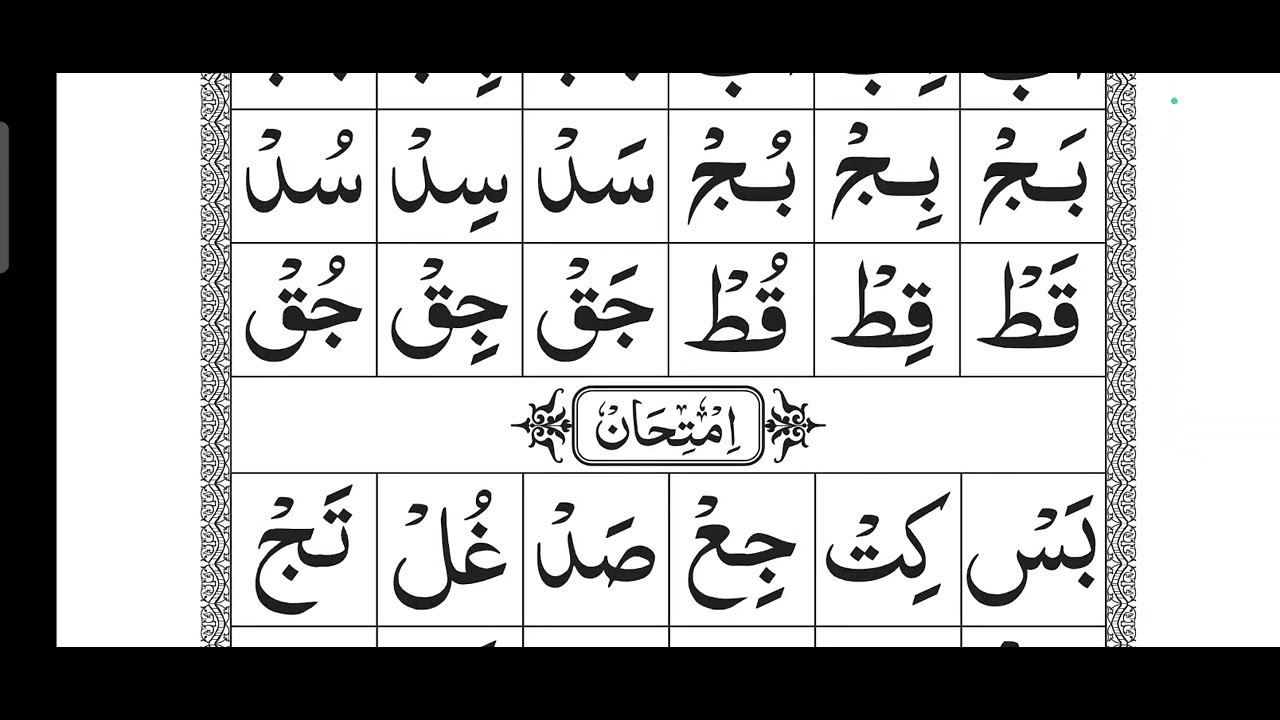 بَجْ بِجْ بُجْ سَدْ سِدْ سُدْ
قَطْ قِطْ قُطْ جَقْ جِقْ جُقْ
اِمْتِحَانْ
بَسْ كِتْ جِعْ صَدْ غُلْ تَجْ